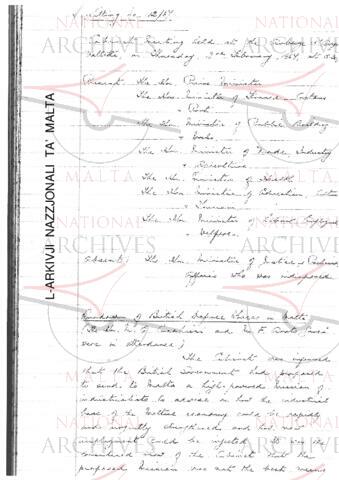 Meeting No. 12/64
Cabinet Meeting held at the
Valletta, on Thursday, February, 1964, at
Present: The Hon. Prime Minister
The Hon. Minister of Finance, Customs
& Port
The Hon. Minister of Public Building
& Works
The Hon. Minister of Trade, Industry
& Agriculture
The Hon. Minister of Health
The Hon. Minister of Education, Culture
& Tourism
The Hon. Minister of Labour, Employment
& Welfare
Absent: The Hon. Minister of Justice &
Affairs who was indisposed
Rundown of British Defence Forces in Malta
were in attendance)
The Cabinet was informed
that the British Government had proposed
to send to Malta a high-powered mission of
industrialists to advise on how the industrial
base of the Maltese economy could be rapidly
and urgently strengthened and how new
employment could be injected. It was the
considered view of the Cabinet that the
proposed Mission was not the best means
L-ARKIVJI NAZZJONALI TA' MALTA
NATIONAL
ARCHIVES
MALTA